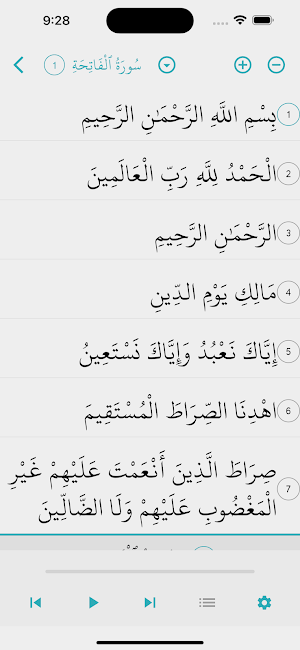 9:28
سُورَةُ ٱلْفَاتِحَةِ 1
بِسْمِ اللَّهِ الرَّحْمَٰنِ الرَّحِيمِ 1
الْحَمْدُ لِلَّهِ رَبِّ الْعَالَمِينَ 2
الرَّحْمَٰنِ الرَّحِيمِ 3
مَالِكِ يَوْمِ الدِّينِ 4
إِيَّاكَ نَعْبُدُ وَإِيَّاكَ نَسْتَعِينُ 5
اهْدِنَا الصِّرَاطَ الْمُسْتَقِيمَ 6
صِرَاطَ الَّذِينَ أَنْعَمْتَ عَلَيْهِمْ غَيْرِ 7
الْمَغْضُوبِ عَلَيْهِمْ وَلَا الضَّالِّينَ